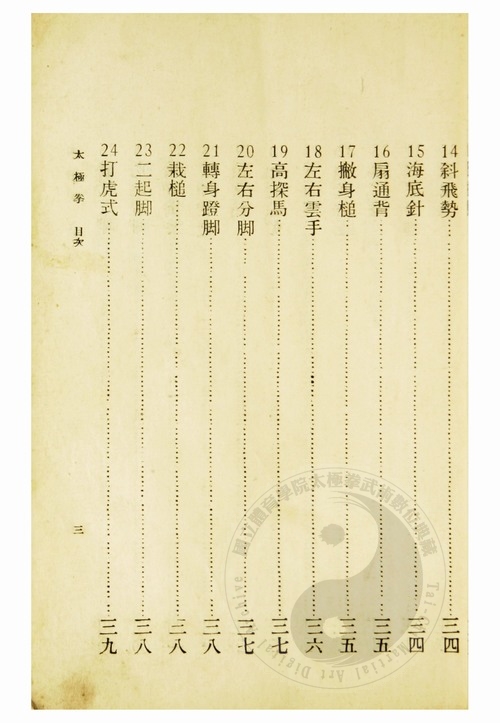 14斜飛勢……三四
15海底針……三四
16扇通背……三五
17撇身槌……三五
18左右雲手……三六
19高探馬……三七
20左右分脚……三七
21轉身蹬脚……三八
22栽槌……三八
23二起脚……三八
24打虎式……三九
太極拳 目次
三
國立體育學院太極拳武術數位典藏
Tai-Chi Martial Art Digital Archive